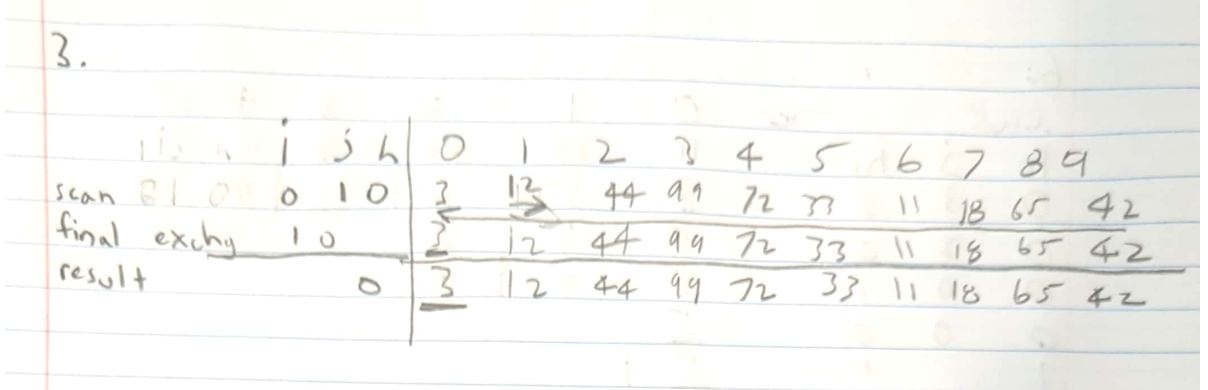 3.
i j h 0 1 2 3 4 5 6 7 8 9
scan 0 10 3 12 44 99 72 33 11 18 65 42
final exchg 1 0 3 12 44 99 72 33 11 18 65 42
result 0 3 12 44 99 72 33 11 18 65 42